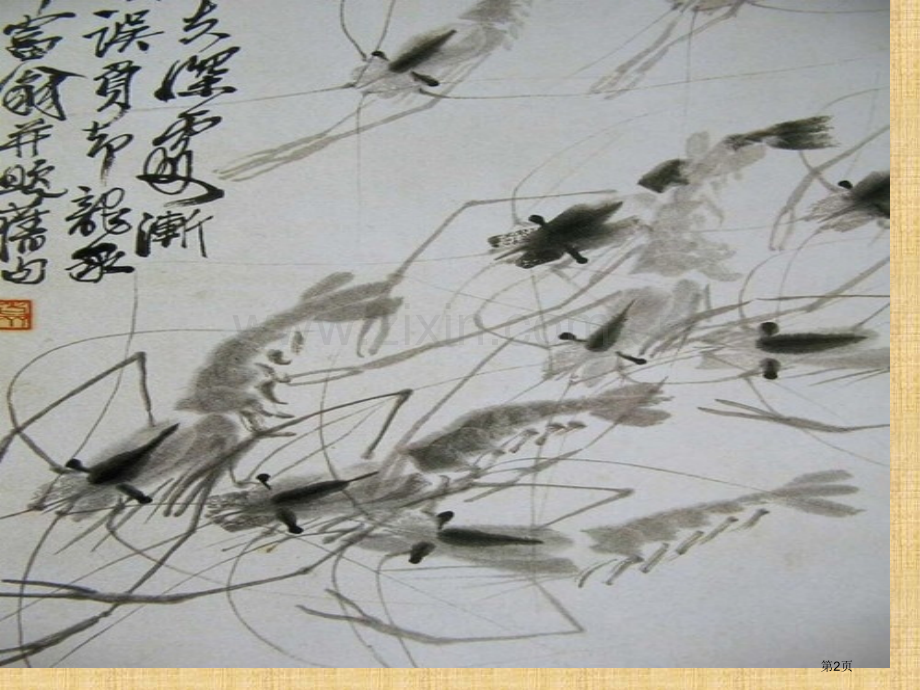 夫深處漸
誤負却龍泉
富翁并題舊句
www.zixin.com.cn
第2页